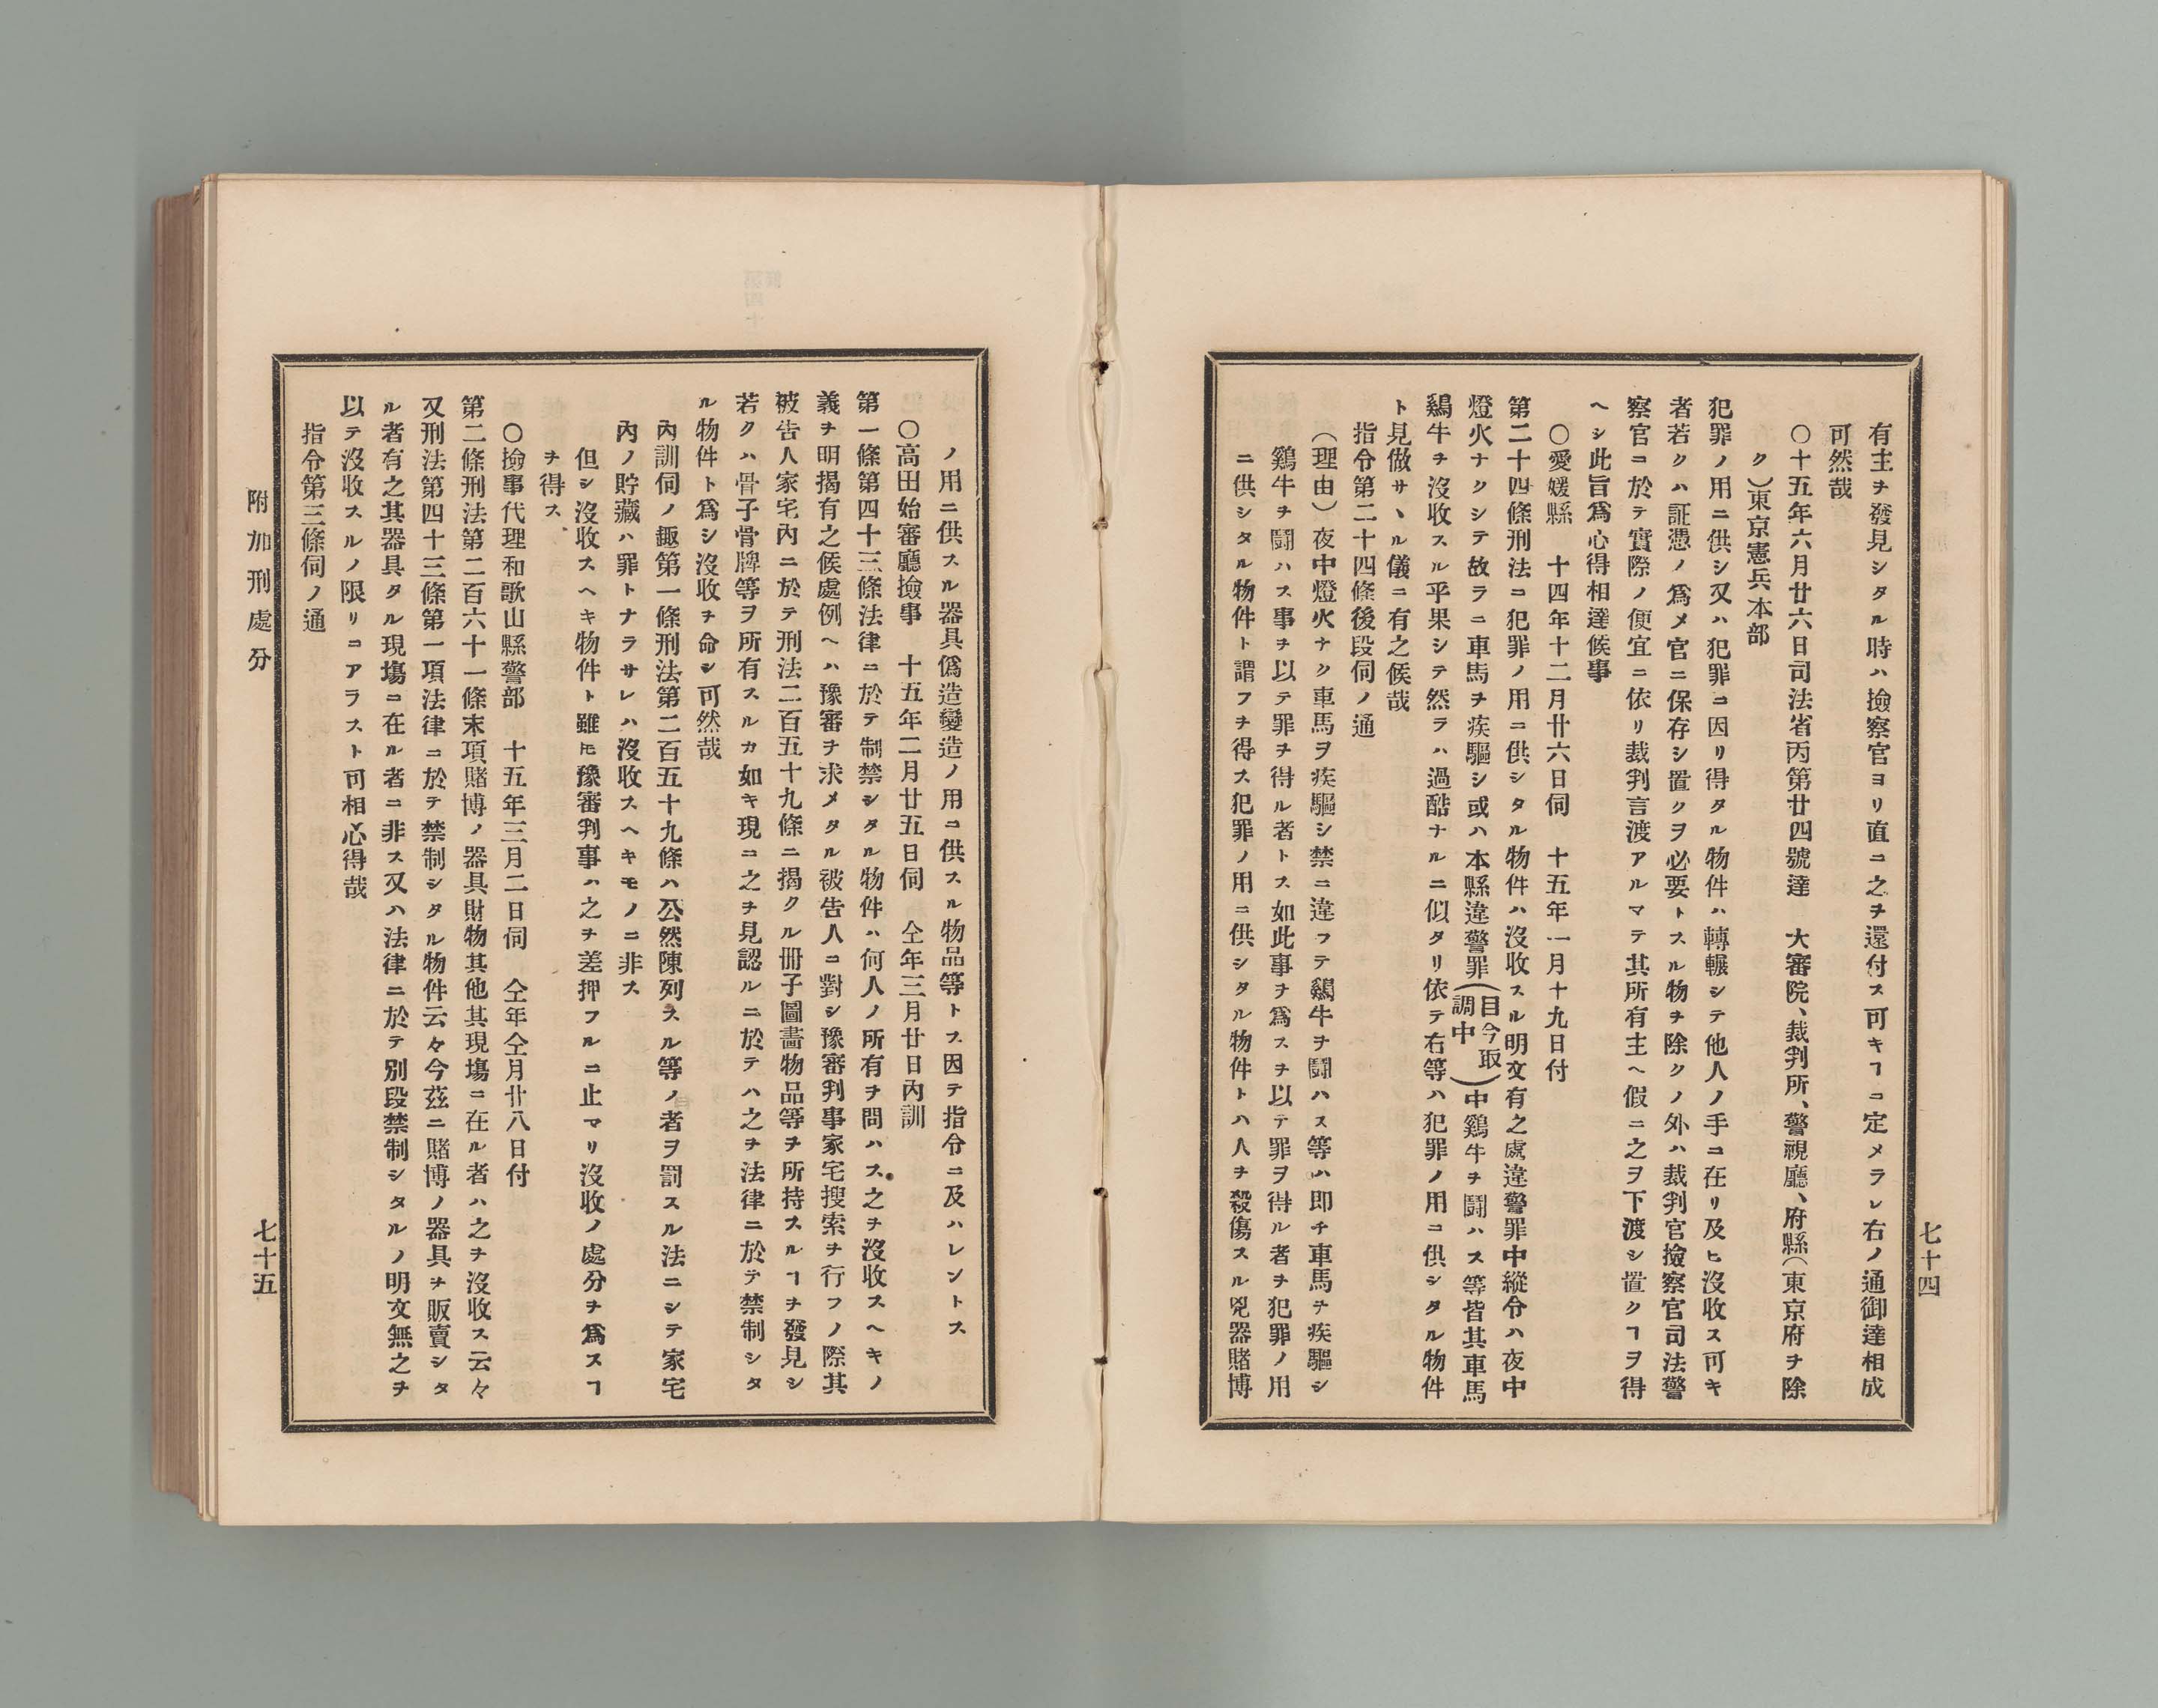 七十四
有主ヲ發見シタル時ハ撿察官ヨリ直ニ之ヲ還付ス可キヿニ定メラレ右ノ通御達相成
可然哉
〇十五年六月廿六日司法省丙第廿四號達　大審院、裁判所、警視廳、府縣（東京府ヲ除
ク）東京憲兵本部
犯罪ノ用ニ供シ又ハ犯罪ニ因リ得タル物件ハ轉輾シテ他人ノ手ニ在リ及ヒ沒收ス可キ
者若クハ証憑ノ爲メ官ニ保存シ置クヲ必要トスル物ヲ除クノ外ハ裁判官撿察官司法警
察官ニ於テ實際ノ便宜ニ依リ裁判言渡アルマテ其所有主ヘ假ニ之ヲ下渡シ置クヿヲ得
ヘシ此旨爲心得相達候事
〇愛媛縣　十四年十二月廿六日伺　十五年一月十九日付
第二十四條刑法ニ犯罪ノ用ニ供シタル物件ハ沒收スル明文有之處違警罪中縱令ハ夜中
燈火ナクシテ故ラニ車馬ヲ疾驅シ或ハ本縣違警罪（目今取調中）中鷄牛ヲ鬪ハス等皆其車馬
鷄牛ヲ沒收スル乎果シテ然ラハ過酷ナルニ似タリ依テ右等ハ犯罪ノ用ニ供シタル物件
ト見做サヽル儀ニ有之候哉
指令第二十四條後段伺ノ通
（理由）夜中燈火ナク車馬ヲ疾驅シ禁ニ違フテ鷄牛ヲ鬪ハス等ハ即チ車馬ヲ疾驅シ
鷄牛ヲ鬪ハス事ヲ以テ罪ヲ得ル者トス如此事ヲ爲スヲ以テ罪ヲ得ル者ヲ犯罪ノ用
ニ供シタル物件ト謂フヲ得ス犯罪ノ用ニ供シタル物件トハ人ヲ殺傷スル兇器賭博
ノ用ニ供スル器具僞造變造ノ用ニ供スル物品等トス因テ指令ニ及ハレントス
〇高田始審廳撿事　十五年二月廿五日伺　仝年三月廿日內訓
第一條第四十三條法律ニ於テ制禁シタル物件ハ何人ノ所有ヲ問ハス之ヲ沒收スヘキノ
義ヲ明揭有之候處例ヘハ豫審ヲ求メタル被告人ニ對シ豫審判事家宅搜索ヲ行フノ際其
被告人家宅內ニ於テ刑法二百五十九條ニ揭クル冊子圖畫物品等ヲ所持スルヿヲ發見シ
若クハ骨子骨牌等ヲ所有スルカ如キ現ニ之ヲ見認ルニ於テハ之ヲ法律ニ於テ禁制シタ
ル物件ト爲シ沒收ヲ命シ可然哉
內訓伺ノ趣第一條刑法第二百五十九條ハ公然陳列スル等ノ者ヲ罰スル法ニシテ家宅
內ノ貯藏ハ罪トナラサレハ沒收スヘキモノニ非ス
但シ沒收スヘキ物件ト雖𪜈豫審判事ハ之ヲ差押フルニ止マリ沒收ノ處分ヲ爲スヿ
ヲ得ス
〇撿事代理和歌山縣警部　十五年三月二日伺　仝年仝月廿八日付
第二條刑法第二百六十一條末項賭博ノ器具財物其他其現塲ニ在ル者ハ之ヲ沒收ス云々
又刑法第四十三條第一項法律ニ於テ禁制シタル物件云々今茲ニ賭博ノ器具ヲ販賣シタ
ル者有之其器具タル現塲ニ在ル者ニ非ス又ハ法律ニ於テ別段禁制シタルノ明文無之ヲ
以テ沒收スルノ限リニアラスト可相心得哉
指令第三條伺ノ通
附加刑處分
七十五